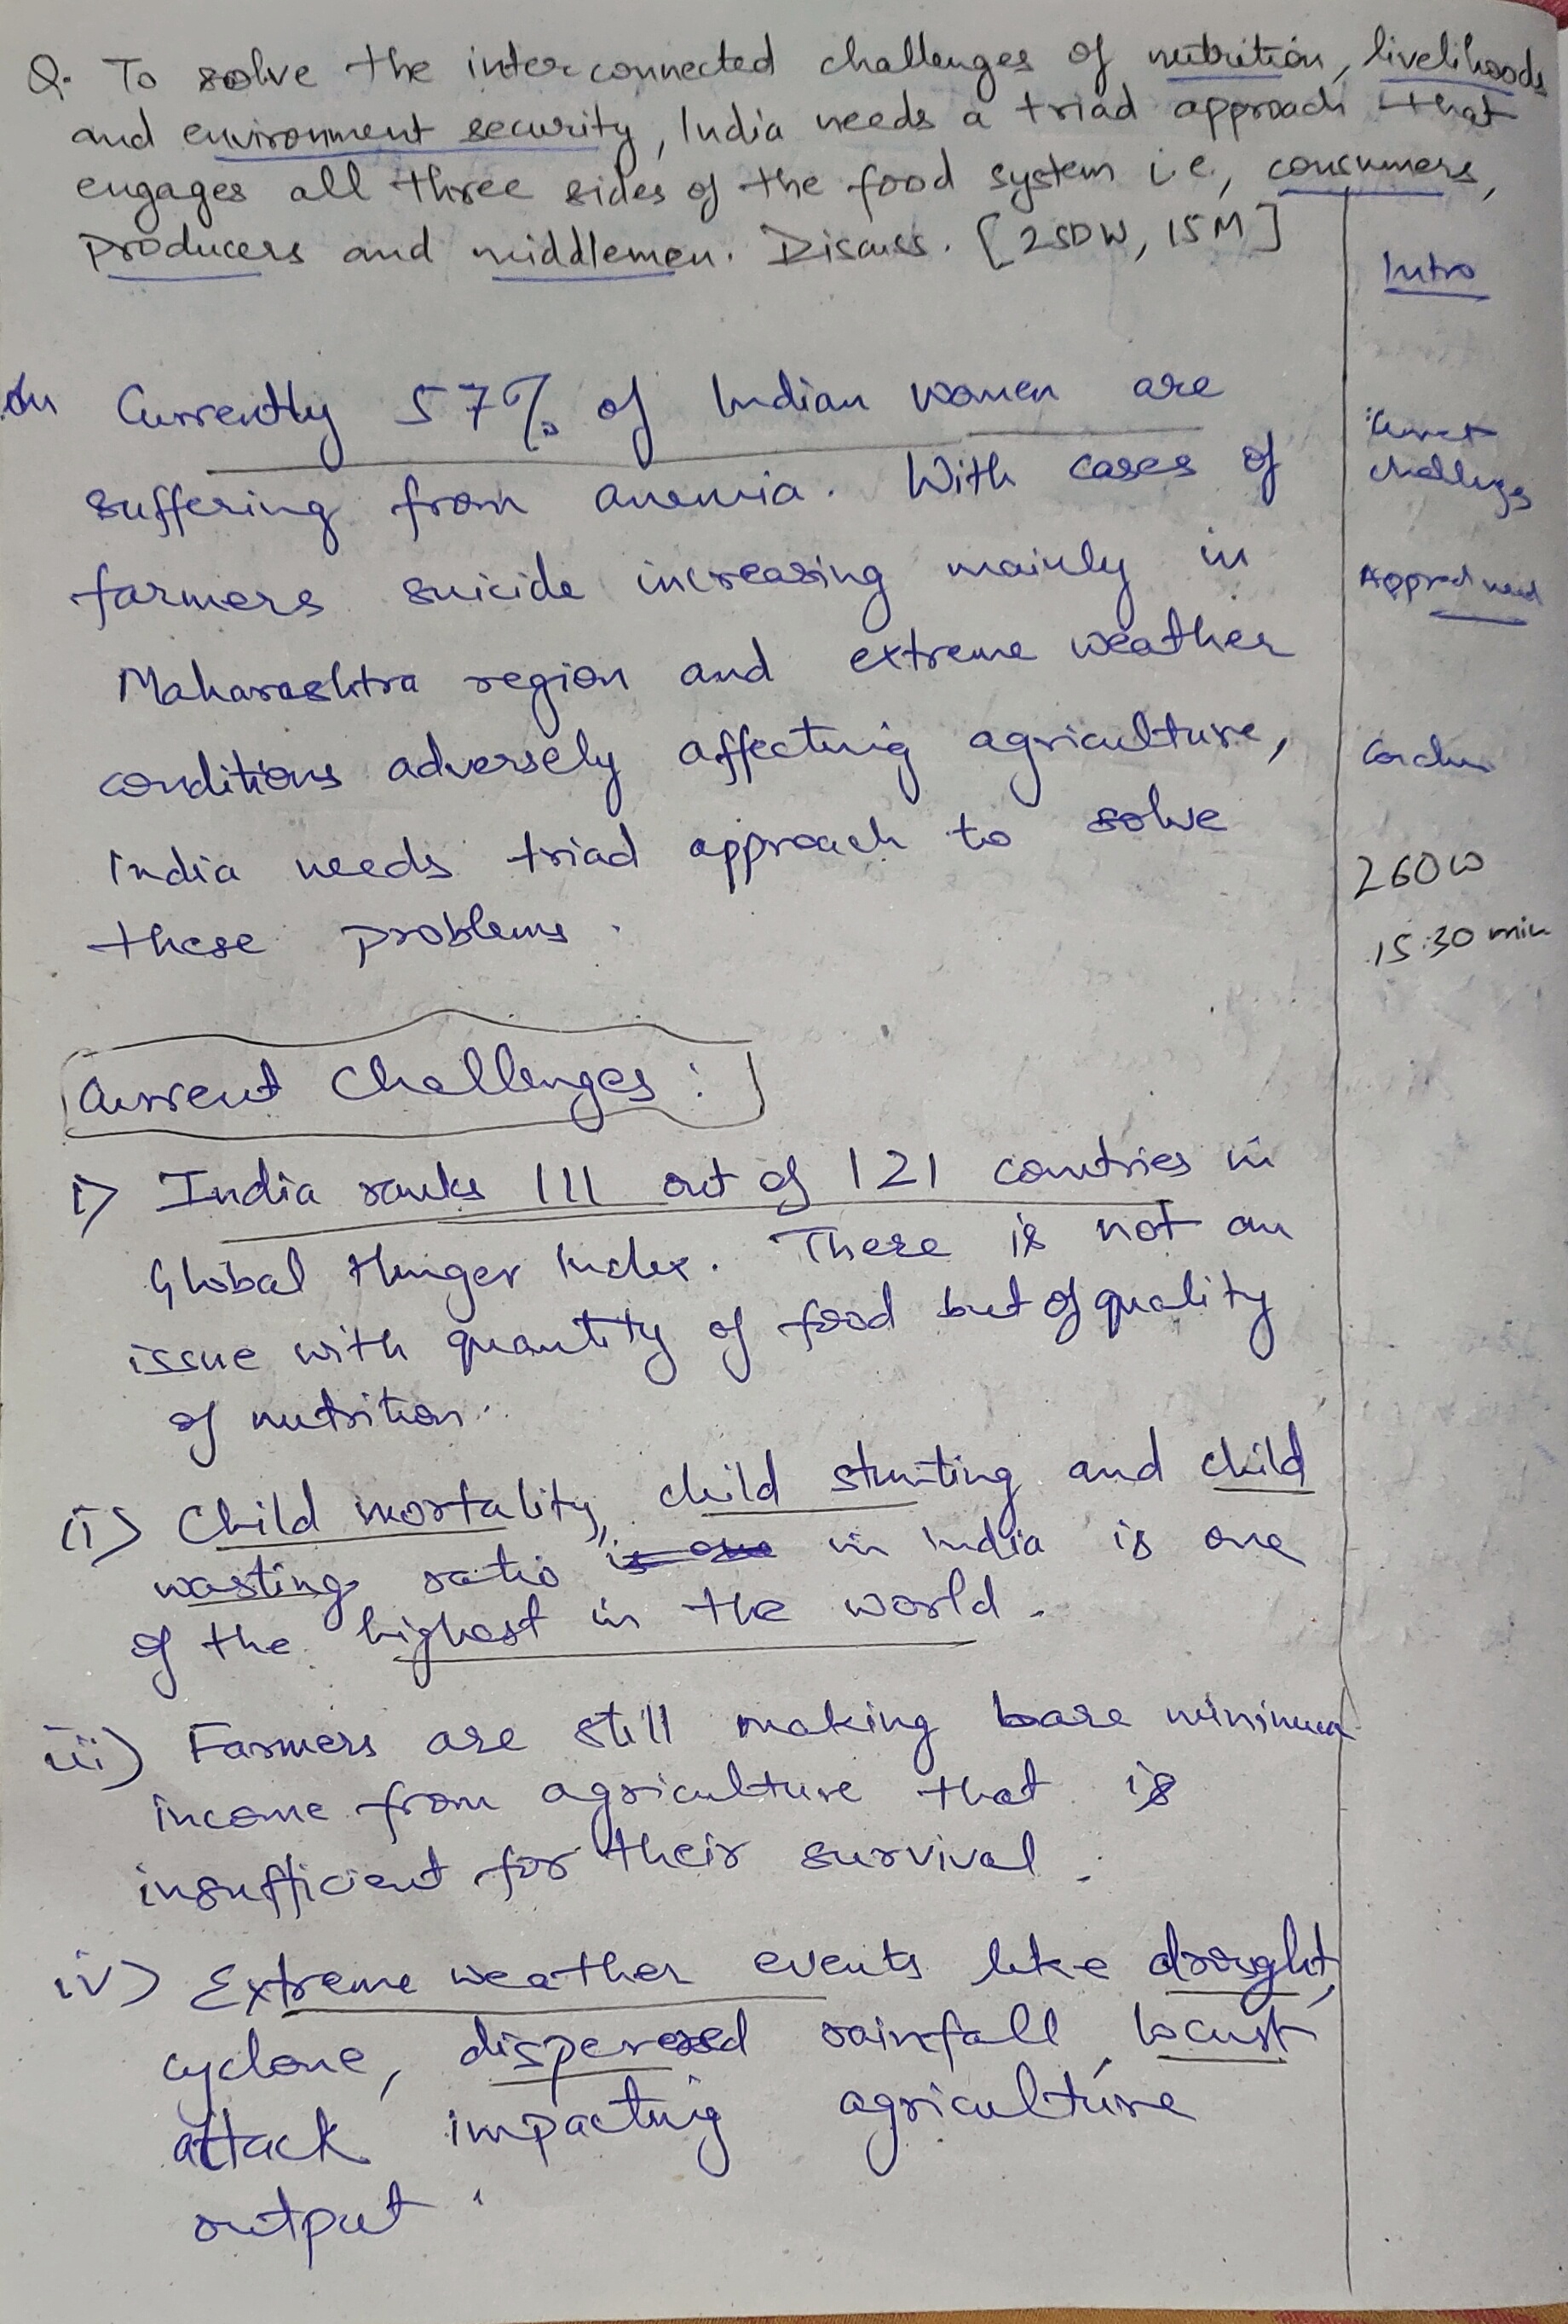 Q. To solve the interconnected challenges of nutrition, livelihoods
and environment security, India needs a triad approach that
engages all three sides of the food system i.e, consumers,
producers and middlemen. Discuss. [250W, 15M]
Intro
Currently 57% of Indian women are
suffering from anemia. With cases of
farmers suicide increasing mainly in
Maharashtra region and extreme weather
conditions adversely affecting agriculture,
India needs triad approach to solve
these problems.
challenges
260W
15:30 min
Current Challenges:
i) India ranks 111 out of 121 countries in
Global Hunger Index. There is not an
issue with quantity of food but of quality
of nutrition.
ii) Child mortality, child stunting and child
wasting ratio in India is one
of the highest in the world.
iii) Farmers are still making bare minimum
income from agriculture that is
insufficient for their survival.
iv) Extreme weather events like drought,
cyclone, dispersed rainfall, locust
attack impacting agriculture
output.